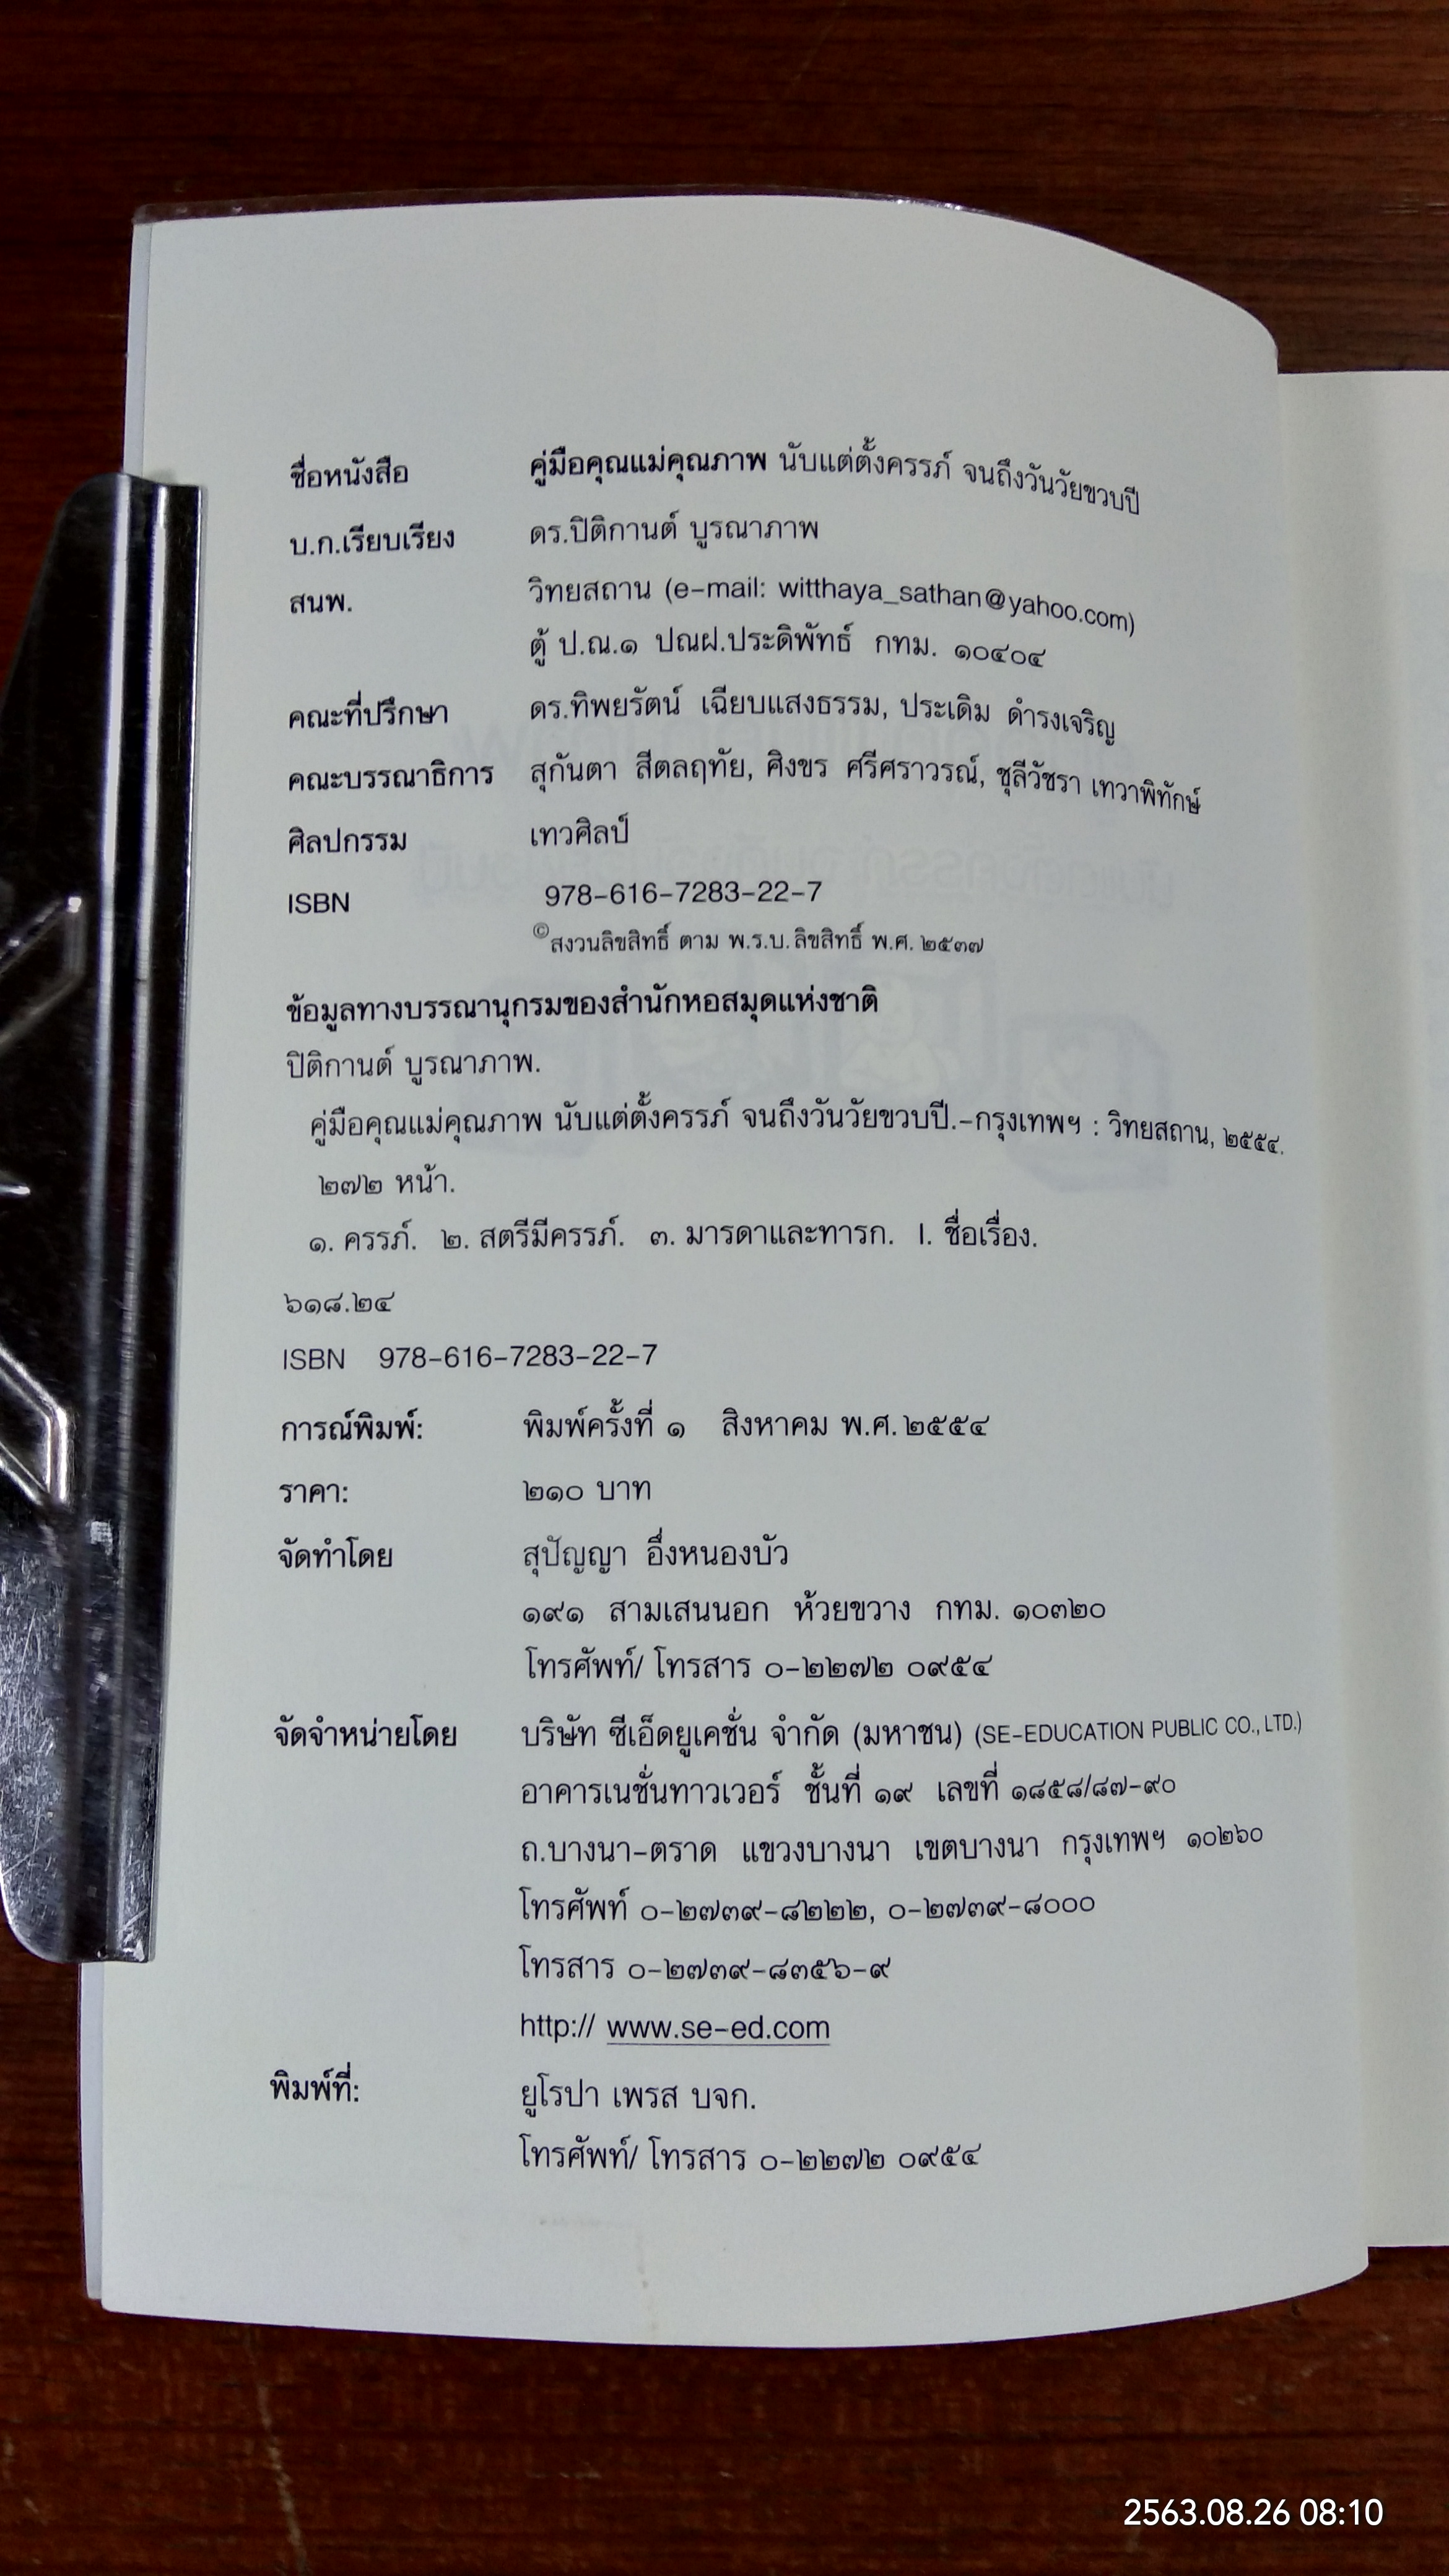 ชื่อหนังสือ คู่มือคุณแม่คุณภาพ นับแต่ตั้งครรภ์ จนถึงวันวัยขวบปี
บ.ก.เรียบเรียง ดร.ปิติกานต์ บูรณาภาพ
สนพ. วิทยสถาน (e-mail: witthaya_sathan@yahoo.com)
ตู้ ป.ณ.๑ ปณฝ.ประดิพัทธ์ กทม. ๑๐๔๐๔
คณะที่ปรึกษา ดร.ทิพยรัตน์ เฉียบแสงธรรม, ประเดิม ดำรงเจริญ
คณะบรรณาธิการ สุกันตา สีตลฤทัย, ศิงขร ศรีศราวรณ์, ชุลีวัชรา เทวาพิทักษ์
ศิลปกรรม เทวศิลป์
ISBN 978-616-7283-22-7
©สงวนลิขสิทธิ์ ตาม พ.ร.บ. ลิขสิทธิ์ พ.ศ. ๒๕๓๗
ข้อมูลทางบรรณานุกรมของสำนักหอสมุดแห่งชาติ
ปิติกานต์ บูรณาภาพ.
คู่มือคุณแม่คุณภาพ นับแต่ตั้งครรภ์ จนถึงวันวัยขวบปี.-กรุงเทพฯ : วิทยสถาน, ๒๕๕๔.
๒๗๒ หน้า.
๑. ครรภ์. ๒. สตรีมีครรภ์. ๓. มารดาและทารก. I. ชื่อเรื่อง.
๖๑๘.๒๔
ISBN 978-616-7283-22-7
การณ์พิมพ์: พิมพ์ครั้งที่ ๑ สิงหาคม พ.ศ. ๒๕๕๔
ราคา: ๒๑๐ บาท
จัดทำโดย สุปัญญา อึ่งหนองบัว
๑๙๑ สามเสนนอก ห้วยขวาง กทม. ๑๐๓๒๐
โทรศัพท์/ โทรสาร ๐-๒๒๗๒ ๐๙๕๔
จัดจำหน่ายโดย บริษัท ซีเอ็ดยูเคชั่น จำกัด (มหาชน) (SE-EDUCATION PUBLIC CO., LTD.)
อาคารเนชั่นทาวเวอร์ ชั้นที่ ๑๙ เลขที่ ๑๘๕๘/๘๗-๙๐
ถ.บางนา-ตราด แขวงบางนา เขตบางนา กรุงเทพฯ ๑๐๒๖๐
โทรศัพท์ ๐-๒๗๓๙-๘๒๒๒, ๐-๒๗๓๙-๘๐๐๐
โทรสาร ๐-๒๗๓๙-๘๓๕๖-๙
http:// www.se-ed.com
พิมพ์ที่: ยูโรปา เพรส บจก.
โทรศัพท์/ โทรสาร ๐-๒๒๗๒ ๐๙๕๔
2563.08.26 08:10